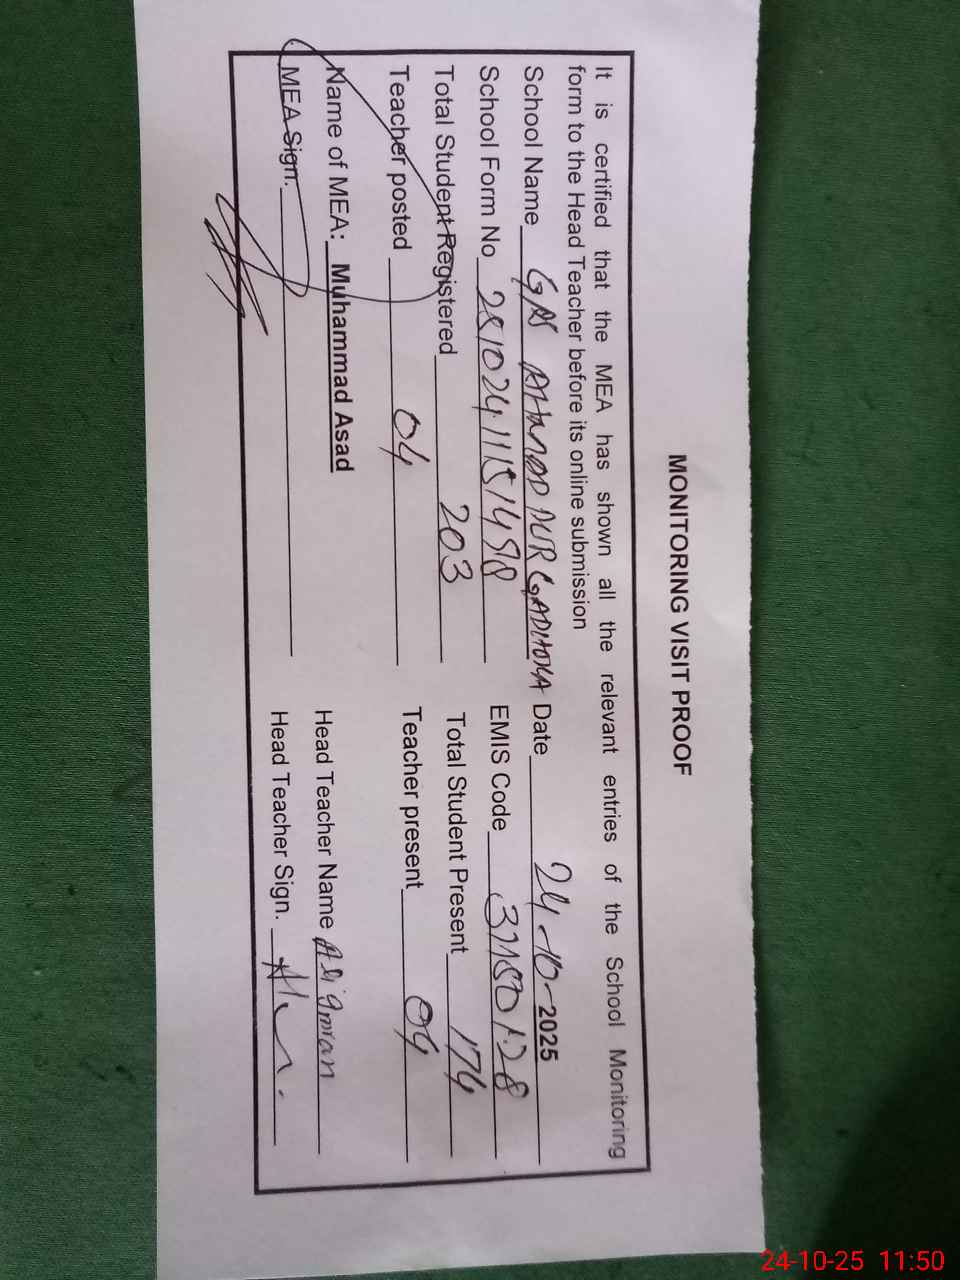 MONITORING VISIT PROOF
It is certified that the MEA has shown all the relevant entries of the School Monitoring
form to the Head Teacher before its online submission
School Name Date 24-10-2025
School Form No EMIS Code 37150128
Total Student Registered 203 Total Student Present 174
Teacher posted 04 Teacher present 04
Name of MEA: Muhammad Asad Head Teacher Name Ali Imran
MEA Sign. Head Teacher Sign.
24-10-25 11:50